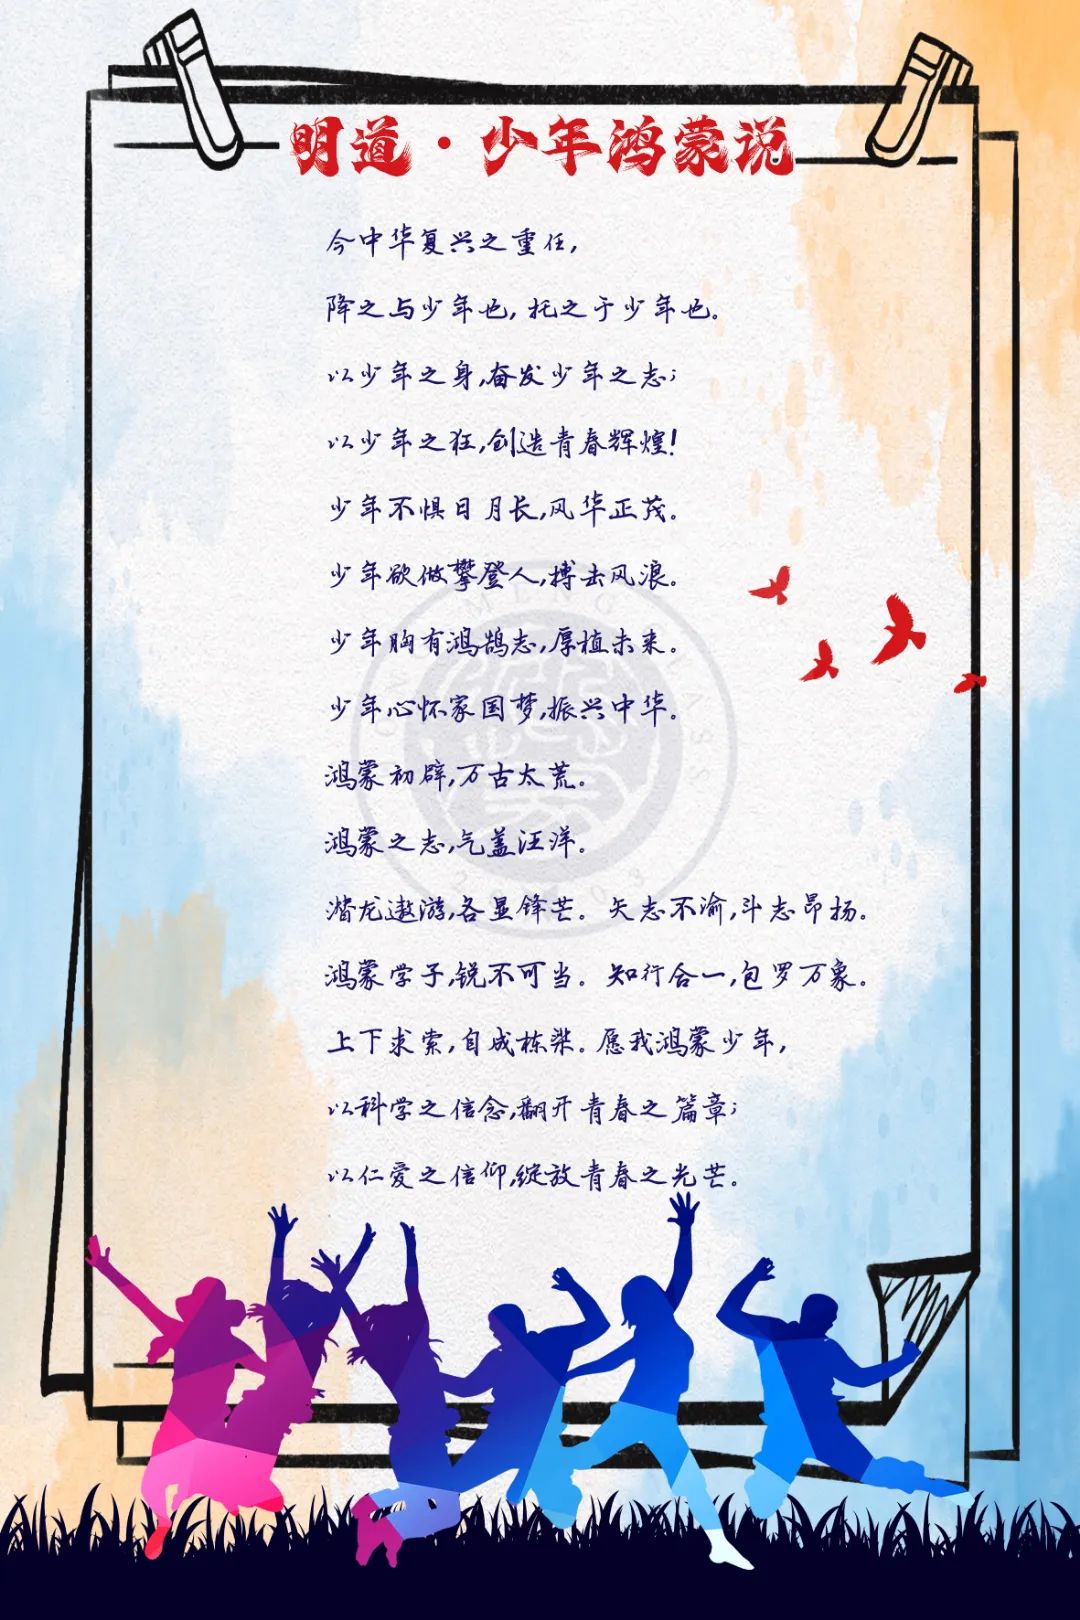 明道·少年鸿蒙说
今中华复兴之重任,
降之与少年也, 托之于少年也。
以少年之身,奋发少年之志;
以少年之狂,创造青春辉煌!
少年不惧日月长,风华正茂。
少年欲做攀登人,搏击风浪。
少年胸有鸿鹄志,厚植未来。
少年心怀家国梦,振兴中华。
鸿蒙初辟,万古太荒。
鸿蒙之志,气盖汪洋。
潜龙遨游,各显锋芒。 矢志不渝,斗志昂扬。
鸿蒙学子,锐不可当。 知行合一,包罗万象。
上下求索,自成栋梁。愿我鸿蒙少年,
以科学之信念,翻开青春之篇章;
以仁爱之信仰,绽放青春之光芒。